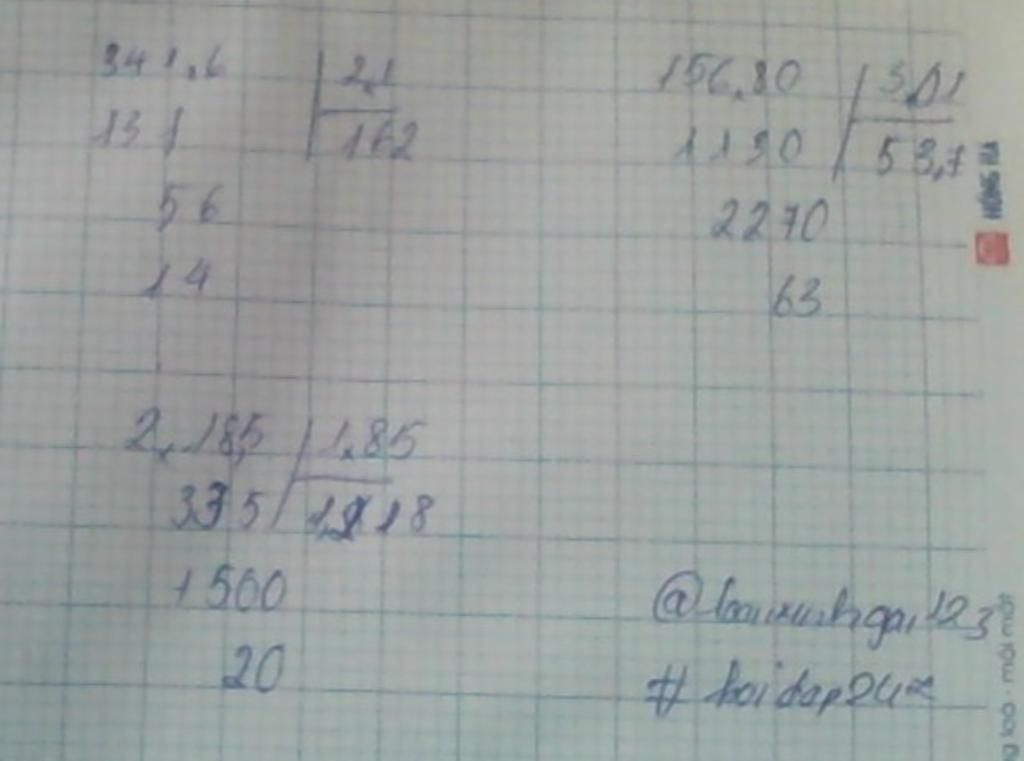 341,6 2,1
131 162
56
14
156,80 3,01
1190 53,7
2270
63
2,18,5 1,85
335 1,18
1500
20
HỒNG HÀ